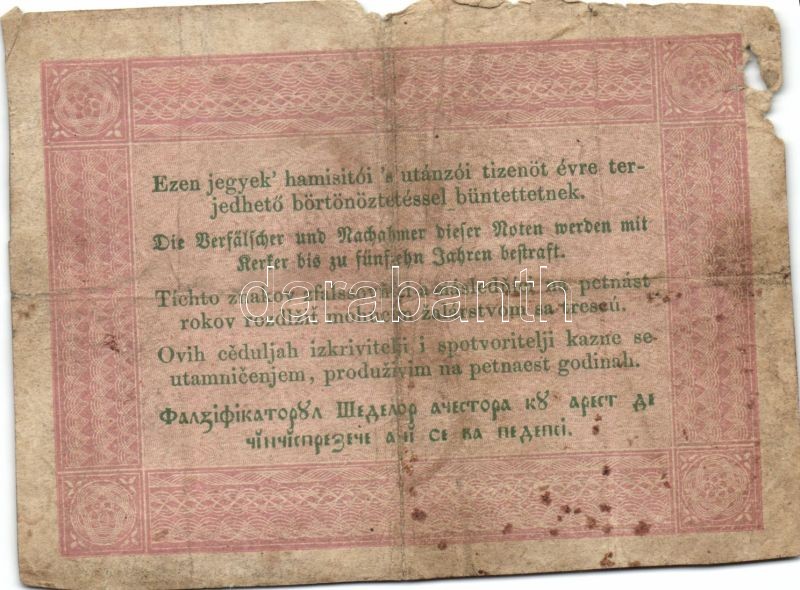 Ezen jegyek' hamisitói 's utánzói tizenöt évre ter-
jedhető börtönöztetéssel büntettetnek.
Die Verfälscher und Nachahmer dieser Noten werden mit
Kerker bis zu fünfzehn Jahren bestraft.
Tíchto znakov na petnást
rokov
Ovih cěduljah izkrivitelji i spotvoritelji kazne se-
utamničenjem, produživim na petnaest godinah.
Фалꙁіфікаторꙋл Шеделор ачестора кꙋ арест де
чінчіспреꙁече ані се ва педепсі.
darabanth